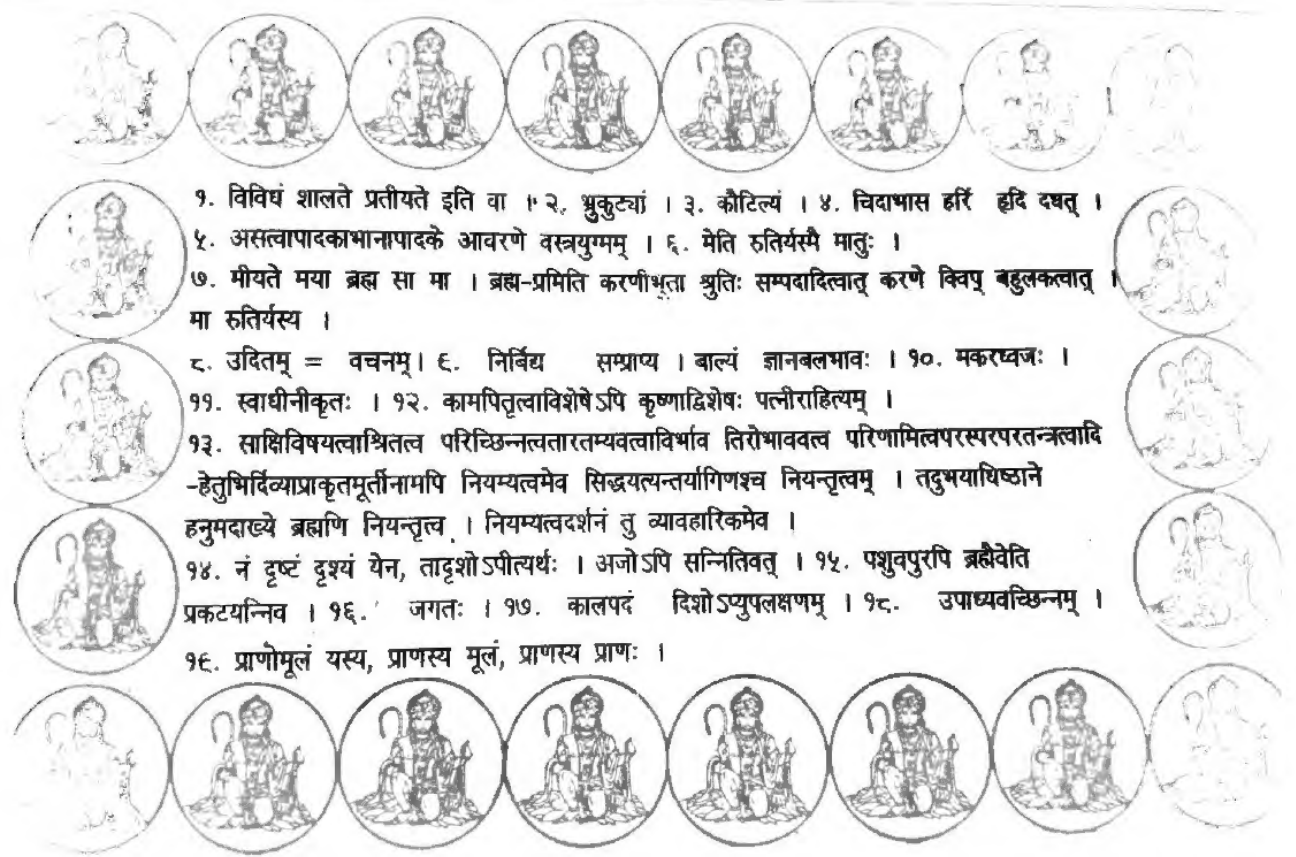 १. विविधं शालते प्रतीयते इति वा । २. भ्रुकुट्यां । ३. कौटिल्यं । ४. चिदाभास हरिं हृदि दधत् ।
५. असत्वापादकाभानापादके आवरणे वस्त्रयुग्मम् । ६. मेति रुतिर्यस्मै मातुः ।
७. मीयते मया ब्रह्म सा मा । ब्रह्म-प्रमिति करणीभूता श्रुतिः सम्पदादित्वात् करणे क्विप् बहुलकत्वात् ।
मा रुतिर्यस्य ।
८. उदितम् = वचनम्। ९. निर्बिद्य सम्प्राप्य । बाल्यं ज्ञानबलभावः । १०. मकरध्वजः ।
११. स्वाधीनीकृतः । १२. कामपितृत्वाविशेषेऽपि कृष्णाद्विशेषः पत्नीराहित्यम् ।
१३. साक्षिविषयत्वाश्रितत्व परिच्छिन्नत्वतारतम्यवत्वाविर्भाव तिरोभाववत्व परिणामित्वपरस्परपरतन्त्रत्वादि
-हेतुभिर्दिव्याप्राकृतमूर्तीनामपि नियम्यत्वमेव सिद्धयत्यन्तर्यागिणश्च नियन्तृत्वम् । तदुभयाधिष्ठाने
हनुमदाख्ये ब्रह्मणि नियन्तृत्व । नियम्यत्वदर्शनं तु व्यावहारिकमेव ।
१४. नं दृष्टं दृश्यं येन, तादृशोऽपीत्यर्थः । अजोऽपि सन्नितिवत् । १५. पशुवपुरपि ब्रह्मैवेति
प्रकटयन्निव । १६. जगतः । १७. कालपदं दिशोऽप्युपलक्षणम् । १८. उपाध्यवच्छिन्नम् ।
१९. प्राणोमूलं यस्य, प्राणस्य मूलं, प्राणस्य प्राणः ।